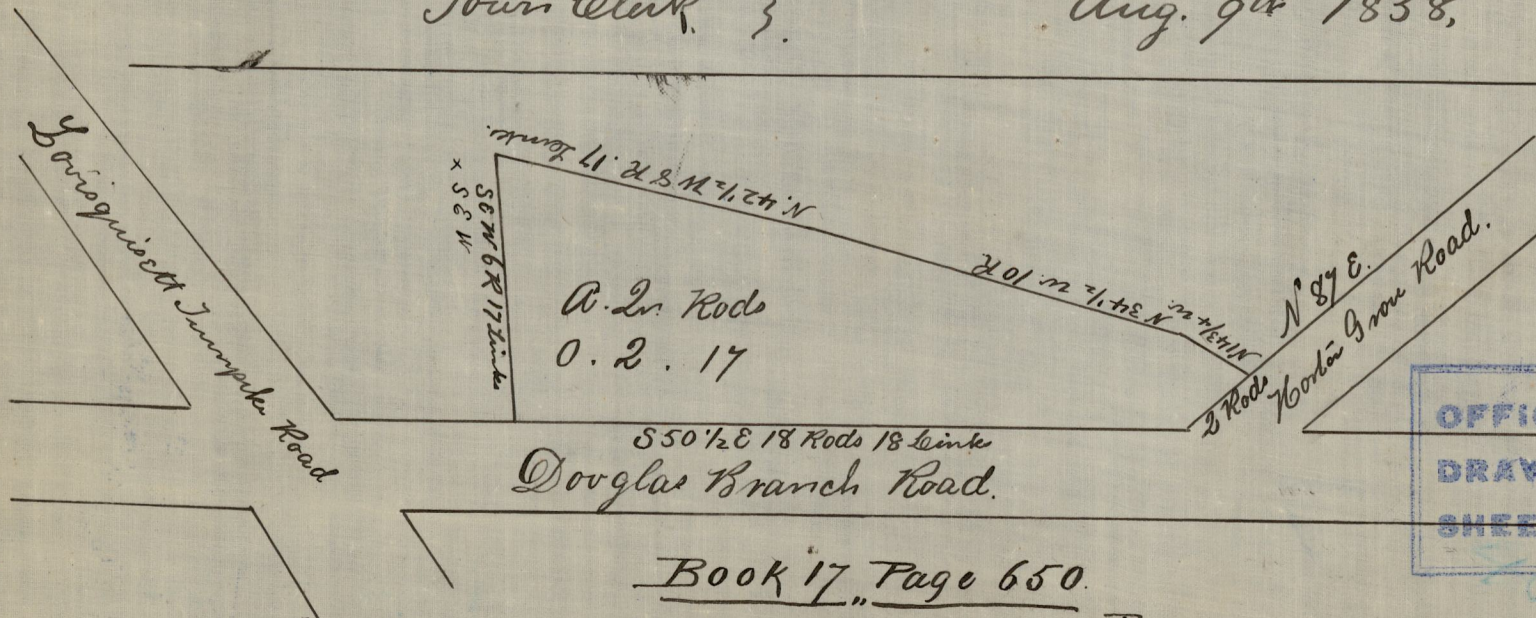 Town Clerk }.
Aug. 9th 1838,
Lovisquisett Turnpike Road
N. 42 1/2 W 8 R. 17 Leinks.
S E W 6 R 17 Links
x S E W
N 34 1/2 W. 10 R
N 43 3/4 W.
N 87 E.
2 Rods
Horton Grove Road.
A. Qr. Rods
0 . 2 . 17
S 50 1/2 E 18 Rods 18 Links
Douglas Branch Road.
Book 17 „ Page 650.
OFFI
DRAW
SHEE